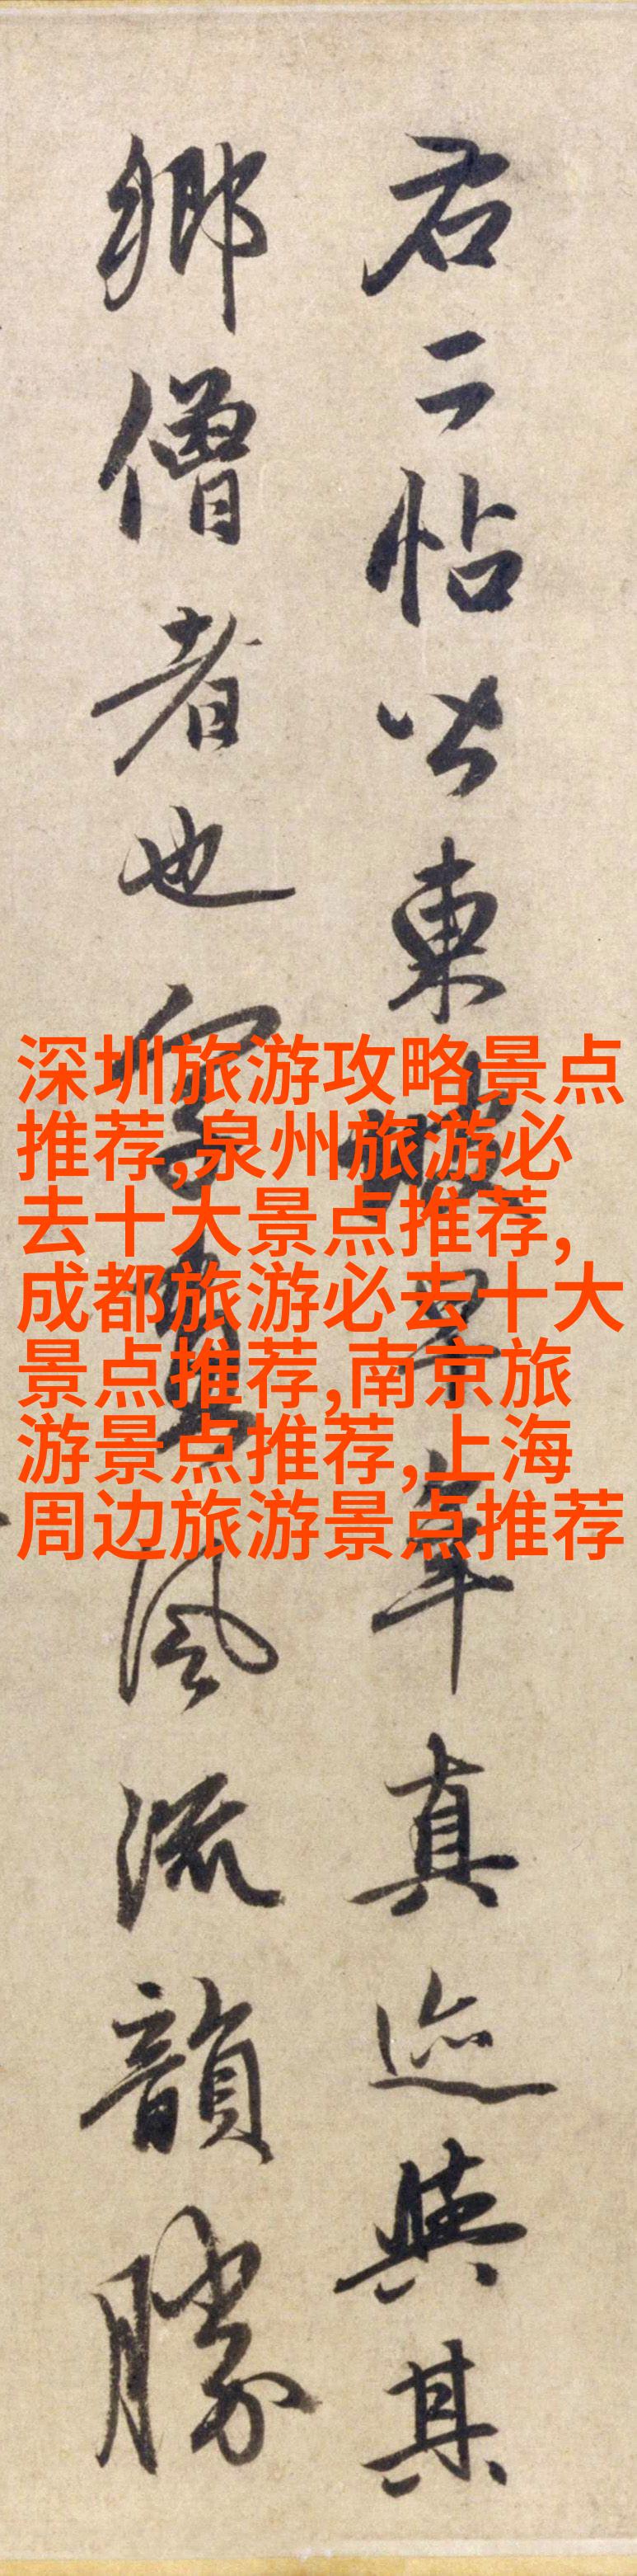 右二帖皆東坡早年真迹與其
鄉僧者也字畫風流韻勝
深圳旅游攻略景点
推荐,泉州旅游必
去十大景点推荐,
成都旅游必去十大
景点推荐,南京旅
游景点推荐,上海
周边旅游景点推荐